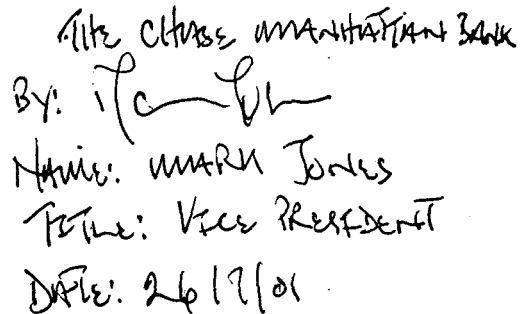 THE CHASE MANHATTAN BANK
BY:
NAME: MARK JONES
TITLE: VICE PRESIDENT
DATE: 26/7/01